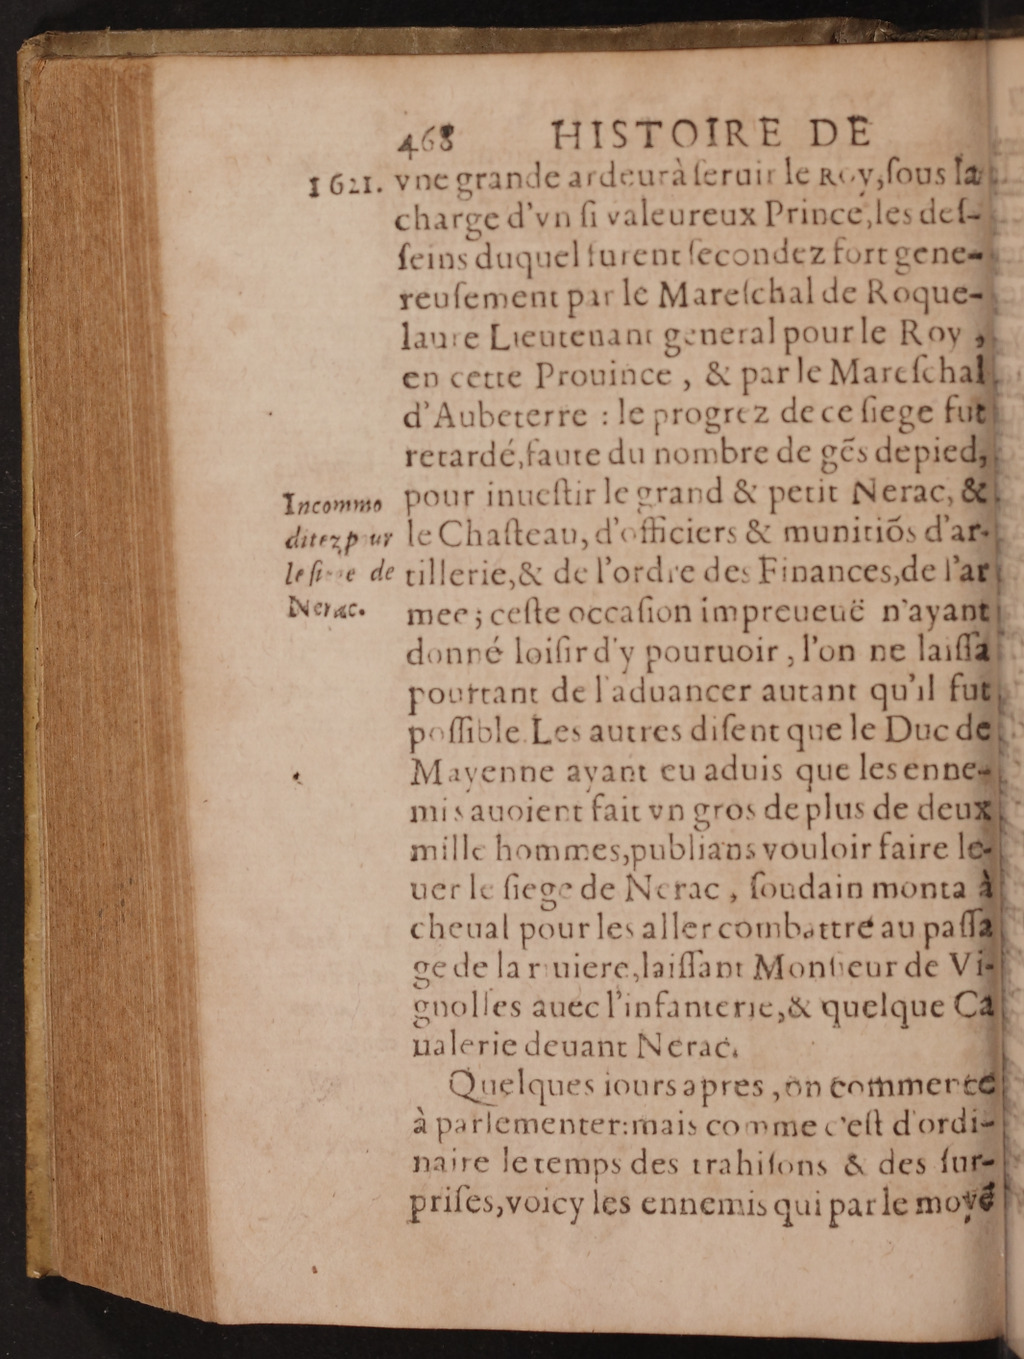 468 HISTOIRE DE
1621. vne grande ardeur à ſeruir le Roy, ſous la
charge d'vn ſi valeureux Prince, les deſ-
ſeins duquel furent ſecondez fort gene-
reuſement par le Mareſchal de Roque-
laure Lieutenant general pour le Roy,
en cette Prouince, & par le Mareſchal
d'Aubeterre : le progrez de ce ſiege fut
retardé, faute du nombre de gẽs de pied,
pour inueſtir le grand & petit Nerac, &
le Chaſteau, d'officiers & munitiõs d'ar-
tillerie, & de l'ordre des Finances, de l'ar
mee ; ceſte occaſion impreueuë n'ayant
donné loiſir d'y pouruoir, l'on ne laiſſa
pourtant de l'aduancer autant qu'il fut
poſſible. Les autres diſent que le Duc de
Mayenne ayant eu aduis que les enne-
mis auoient fait vn gros de plus de deux
mille hommes, publians vouloir faire le-
uer le ſiege de Nerac, ſoudain monta à
cheual pour les aller combattre au paſſa
ge de la riuiere, laiſſant Monſieur de Vi-
gnolles auec l'infanterie, & quelque Ca
ualerie deuant Nerac.
Quelques iours apres, on commence
à parlementer: mais comme c'eſt d'ordi-
naire le temps des trahiſons & des ſur-
priſes, voicy les ennemis qui par le moyẽ
Incommo
ditez pour
le ſiege de
Nerac.